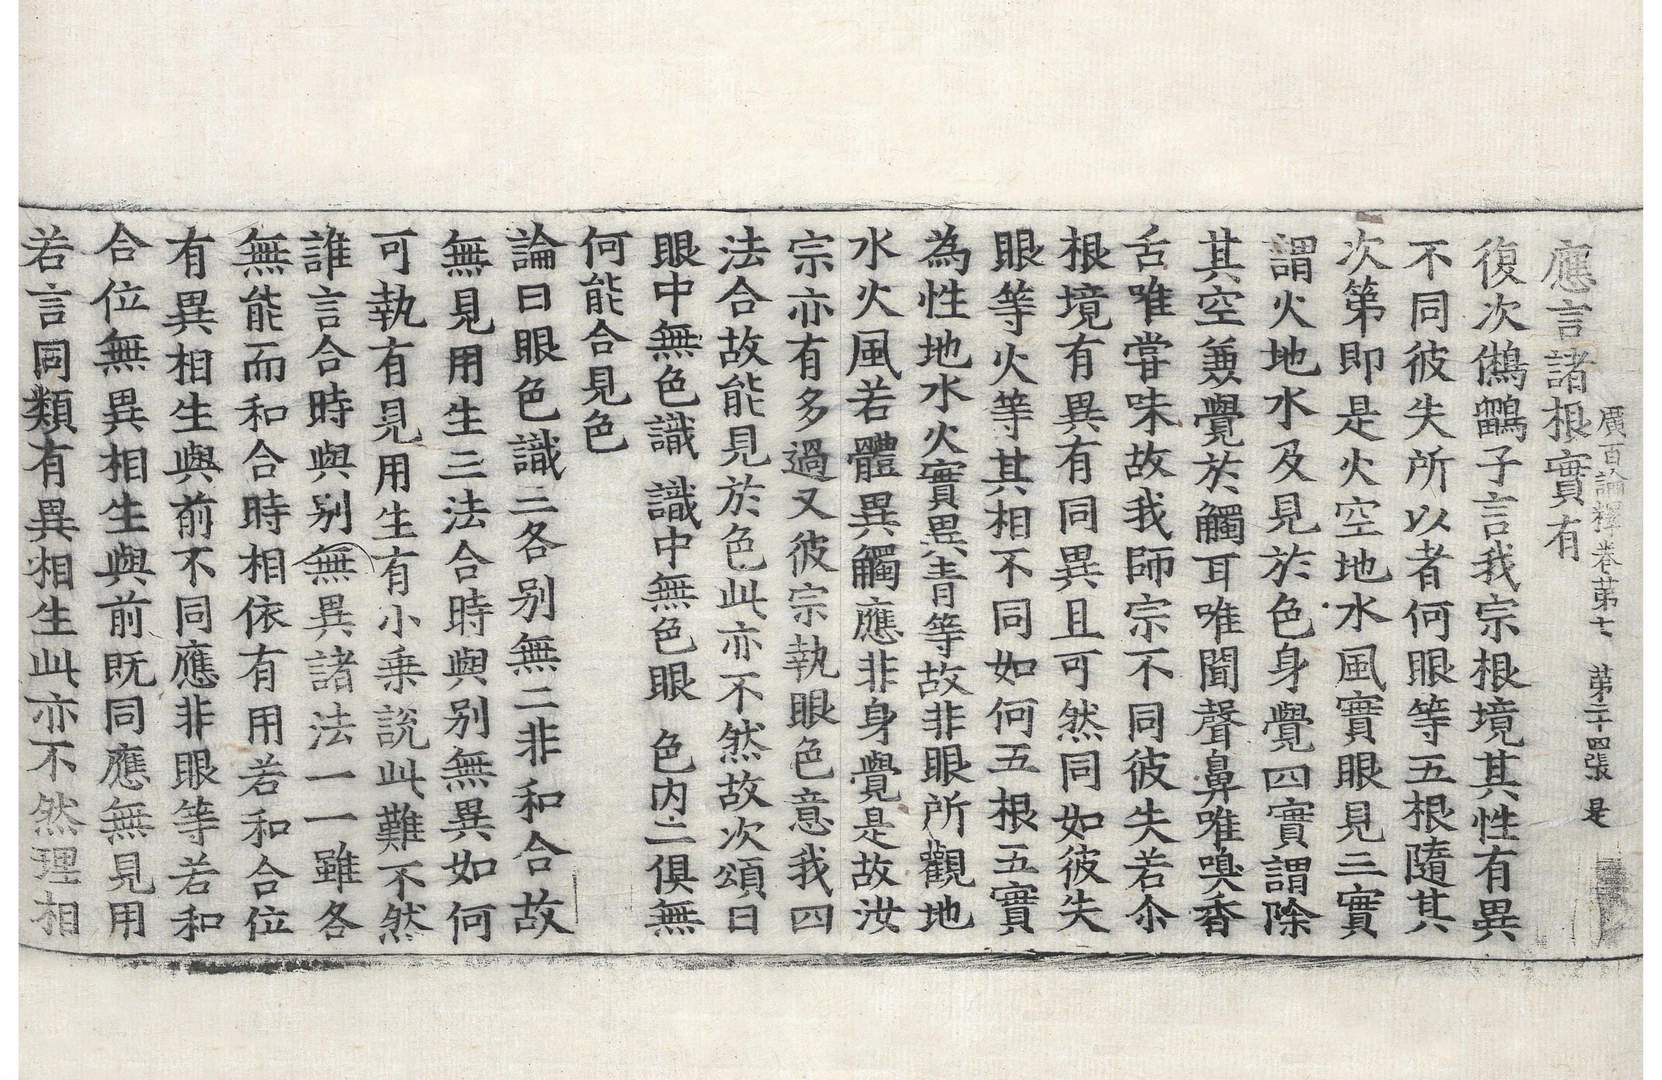 廣百論釋卷苐七 苐二十四張 是
應言諸根實有
復次鵂鶹子言我宗根境其性有異
不同彼失所以者何眼等五根隨其
次第即是火空地水風實眼見三實
謂火地水及見於色身覺四實謂除
其空兼覺於觸耳唯聞聲鼻唯嗅香
舌唯嘗味故我師宗不同彼失若尒
根境有異有同異且可然同如彼失
眼等火等其相不同如何五根五實
為性地水火實異青等故非眼所觀地
水火風若體異觸應非身覺是故汝
宗亦有多過又彼宗執眼色意我四
法合故能見於色此亦不然故次頌曰
眼中無色識 識中無色眼 色内二俱無
何能合見色
論曰眼色識三各别無二非和合故
無見用生三法合時與别無異如何
可執有見用生有小乗說此難不然
誰言合時與别無異諸法一一雖各
無能而和合時相依有用若和合位
有異相生與前不同應非眼等若和
合位無異相生與前既同應無見用
若言同類有異相生此亦不然理相